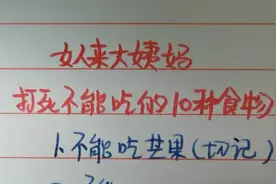 女人来大姨妈
打死不能吃的10种食物
1、不能吃芒果(切记)